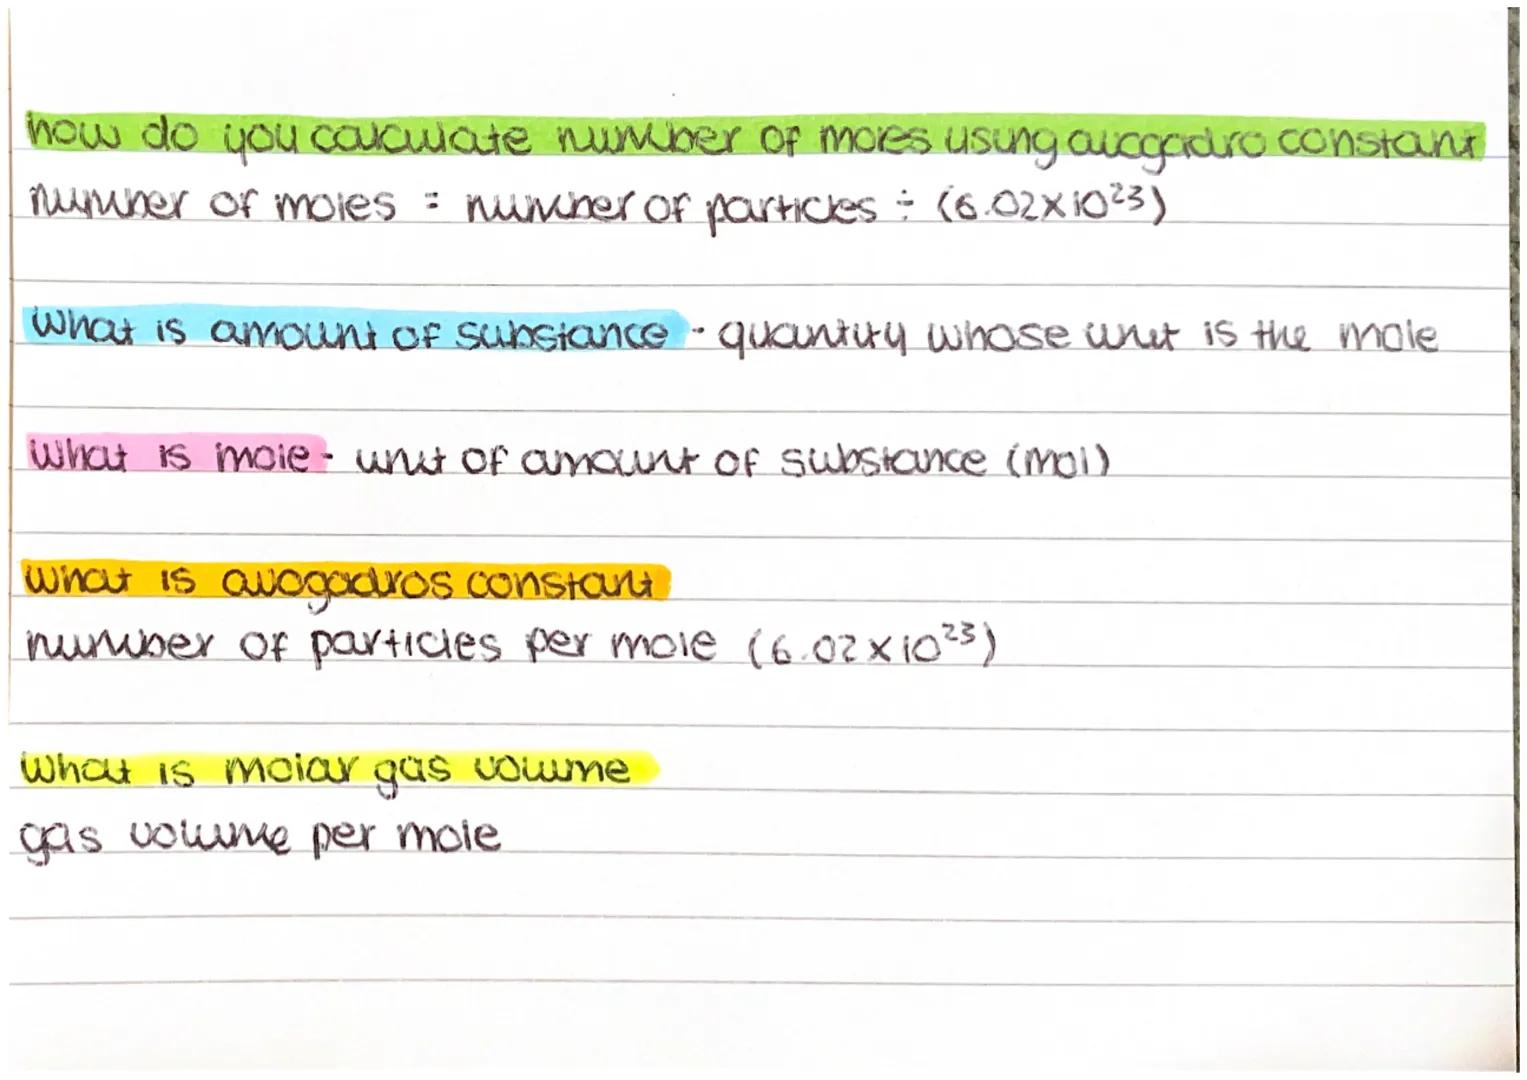 how do you calculate number of moles using avogadro constant
number of moles = number of particles ÷ (6.02×10²³)
what is amount of substance - quantity whose unit is the mole
what is mole - unit of amount of substance (mol)
what is avogadros constant
number of particles per mole (6.02×10²³)
what is molar gas volume
gas volume per mole